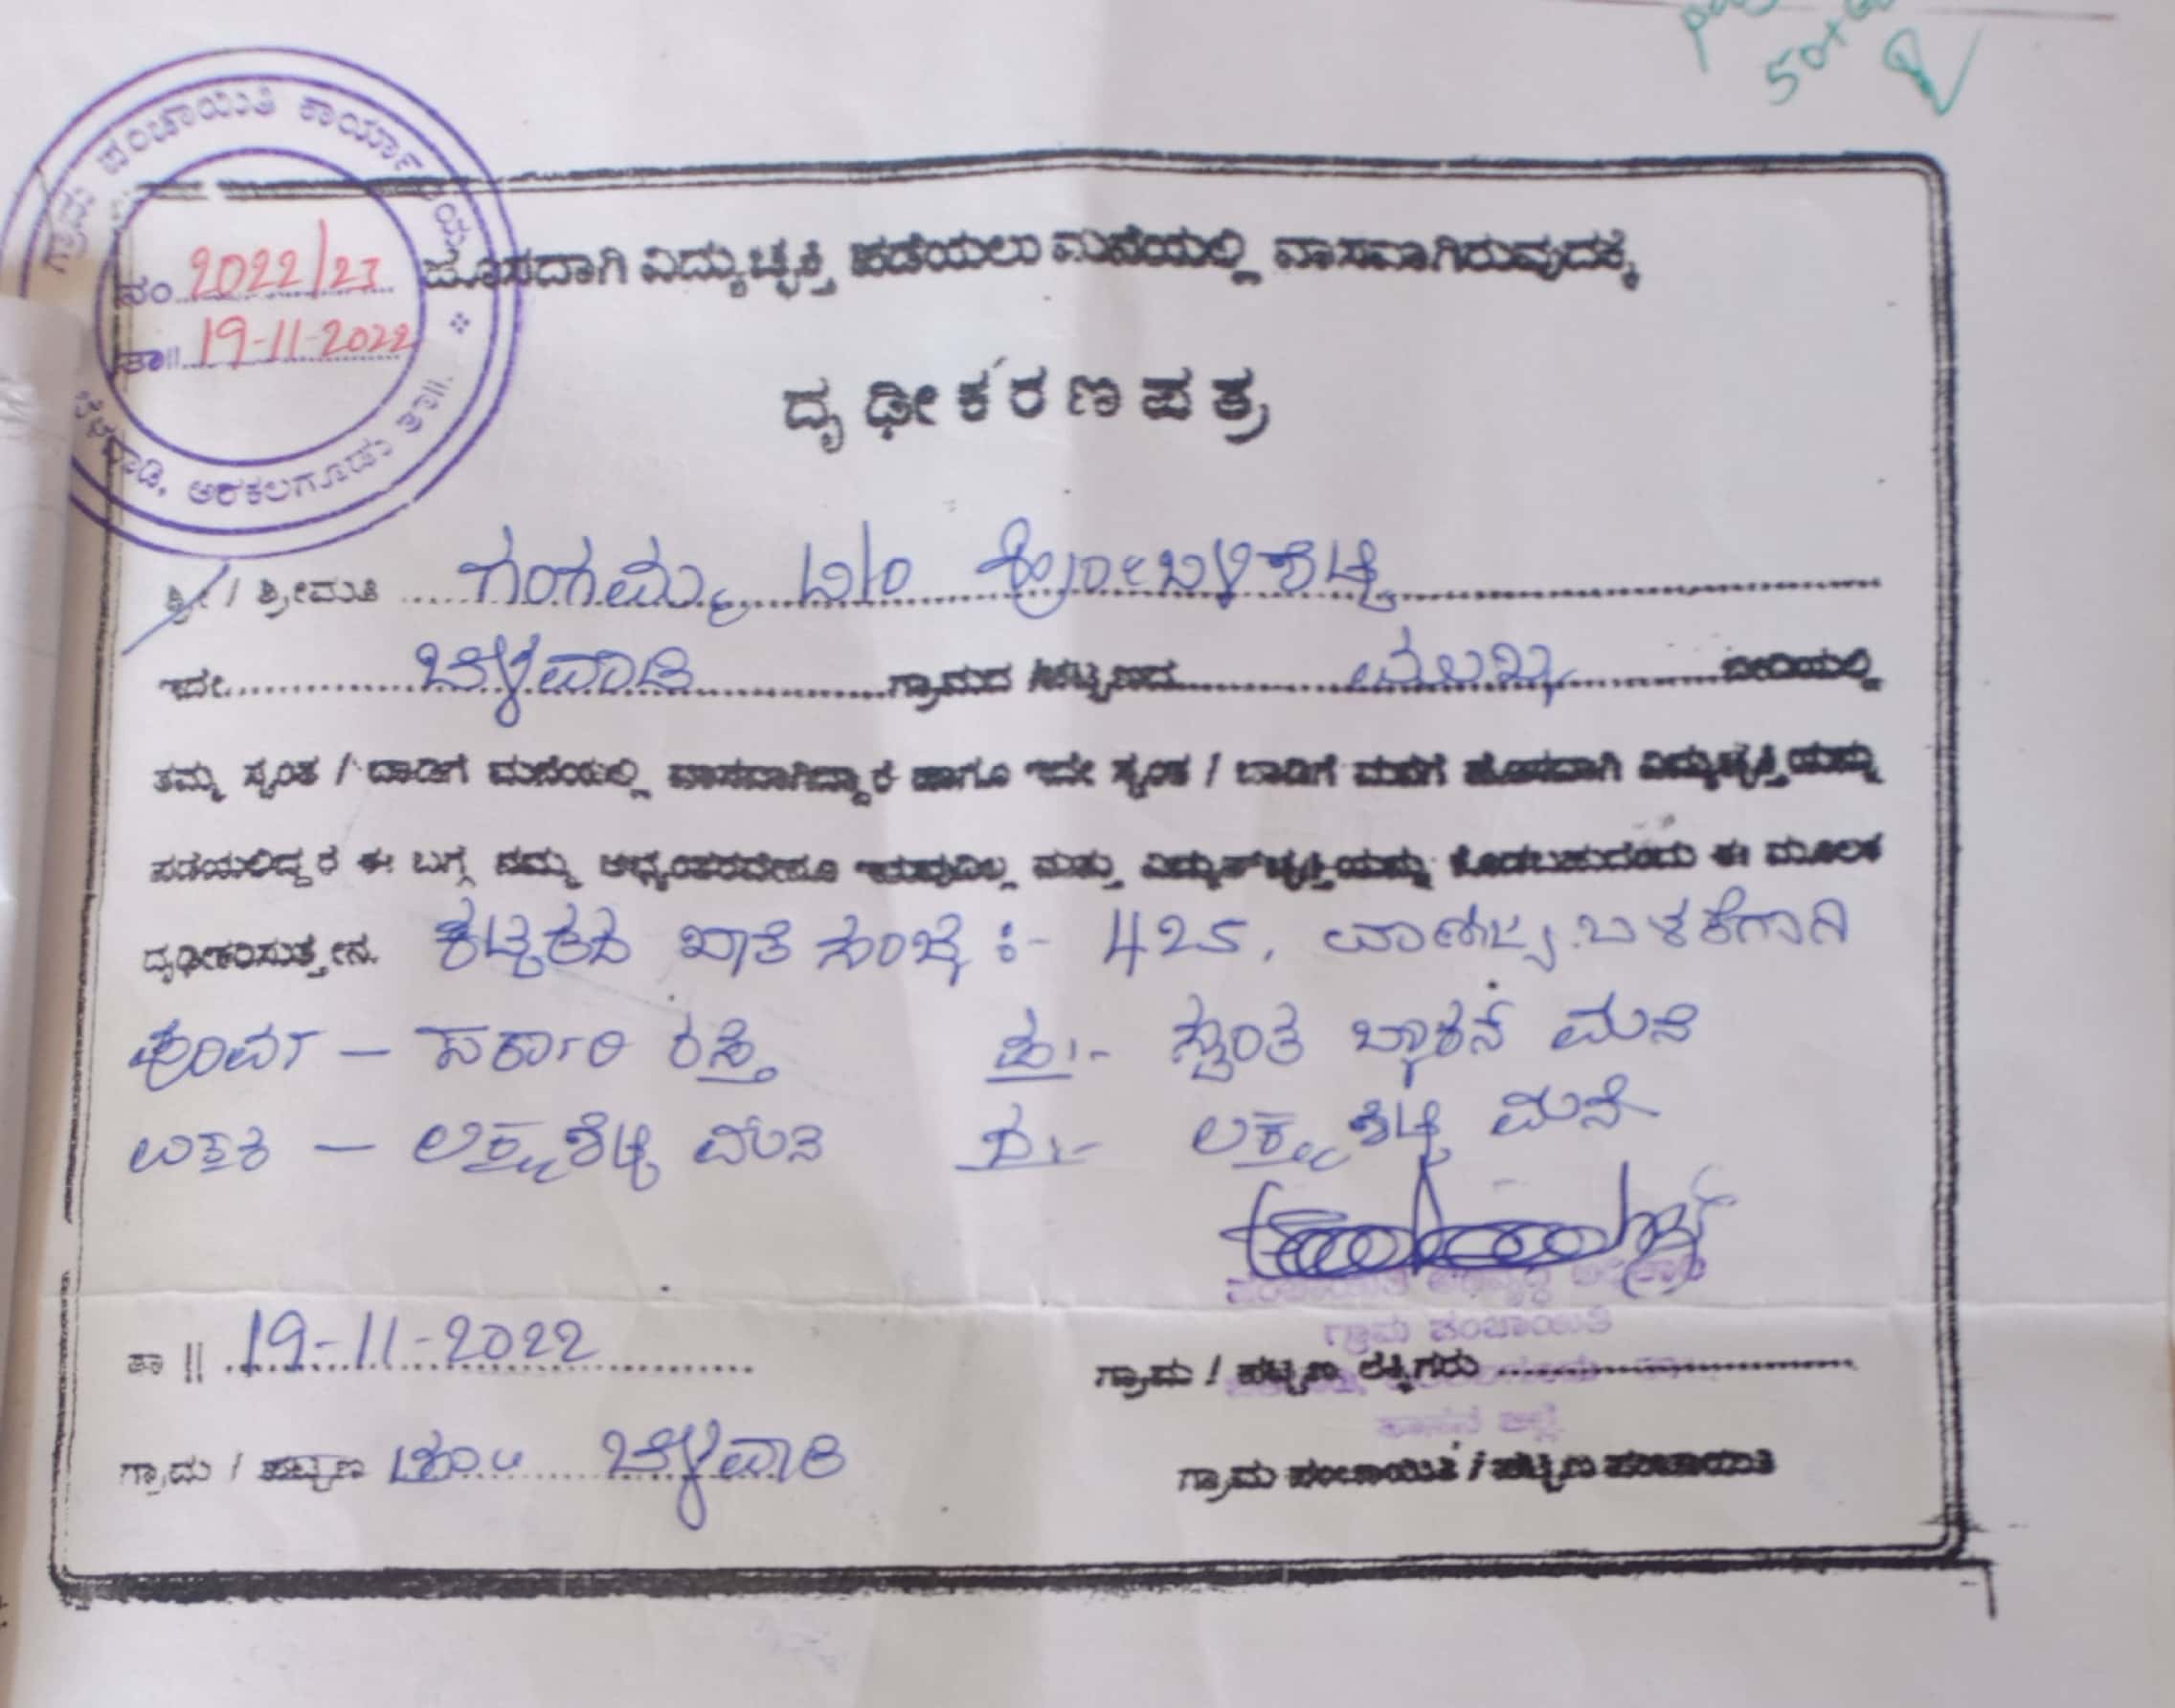 50+
ಗ್ರಾಮ ಪಂಚಾಯಿತಿ ಕಾರ್ಯಾಲಯ
ಬೆಳವಾಡಿ, ಅರಕಲಗೂಡು ತಾ||.
ನಂ 2022/23
ತಾ|| 19-11-2022
ಹೊಸದಾಗಿ ವಿದ್ಯುಚ್ಛಕ್ತಿ ಪಡೆಯಲು ಮನೆಯಲ್ಲಿ ವಾಸವಾಗಿರುವುದಕ್ಕೆ
ದೃಢೀಕರಣ ಪತ್ರ
ಶ್ರೀ / ಶ್ರೀಮತಿ ಗಂಗಮ್ಮ
ಇದೇ ಬೆಳವಾಡಿ ಗ್ರಾಮದ / ಪಟ್ಟಣದ ಮುಖ್ಯ ಬೀದಿಯಲ್ಲಿ
ತಮ್ಮ ಸ್ವಂತ / ಬಾಡಿಗೆ ಮನೆಯಲ್ಲಿ ವಾಸವಾಗಿದ್ದಾರೆ ಹಾಗೂ ಇದೇ ಸ್ವಂತ / ಬಾಡಿಗೆ ಮನೆಗೆ ಹೊಸದಾಗಿ ವಿದ್ಯುಚ್ಛಕ್ತಿಯನ್ನು
ಪಡೆಯಲಿದ್ದಾರೆ ಈ ಬಗ್ಗೆ ನಮ್ಮ ಅಭ್ಯಂತರವೇನೂ ಇರುವುದಿಲ್ಲ ಮತ್ತು ವಿದ್ಯುಚ್ಛಕ್ತಿಯನ್ನು ಕೊಡಬಹುದೆಂದು ಈ ಮೂಲಕ
ದೃಢೀಕರಿಸುತ್ತೇನೆ. ಕಟ್ಟಡದ ಖಾತೆ ಸಂಖ್ಯೆ :- 425, ವಾಣಿಜ್ಯ ಬಳಕೆಗಾಗಿ
ಪೂರ್ವ – ಸರ್ಕಾರಿ ರಸ್ತೆ ಪ:- ಸ್ವಂತ ಮನೆ
ಉತ್ತರ – ಲಕ್ಕ್ಮಶೆಟ್ಟಿ ಮನೆ ದ:- ಲಕ್ಕ್ಮಶೆಟ್ಟಿ ಮನೆ
ಪಂಚಾಯಿತಿ ಅಭಿವೃದ್ಧಿ ಅಧಿಕಾರಿ
ಗ್ರಾಮ ಪಂಚಾಯಿತಿ
ತಾ || 19-11-2022
ಗ್ರಾಮ / ಪಟ್ಟಣ
ಹಾಸನ ಜಿಲ್ಲೆ
ಗ್ರಾಮ / ಪಟ್ಟಣ ಬೆಳವಾಡಿ
ಗ್ರಾಮ ಪಂಚಾಯಿತಿ / ಪಟ್ಟಣ ಪಂಚಾಯಿತಿ